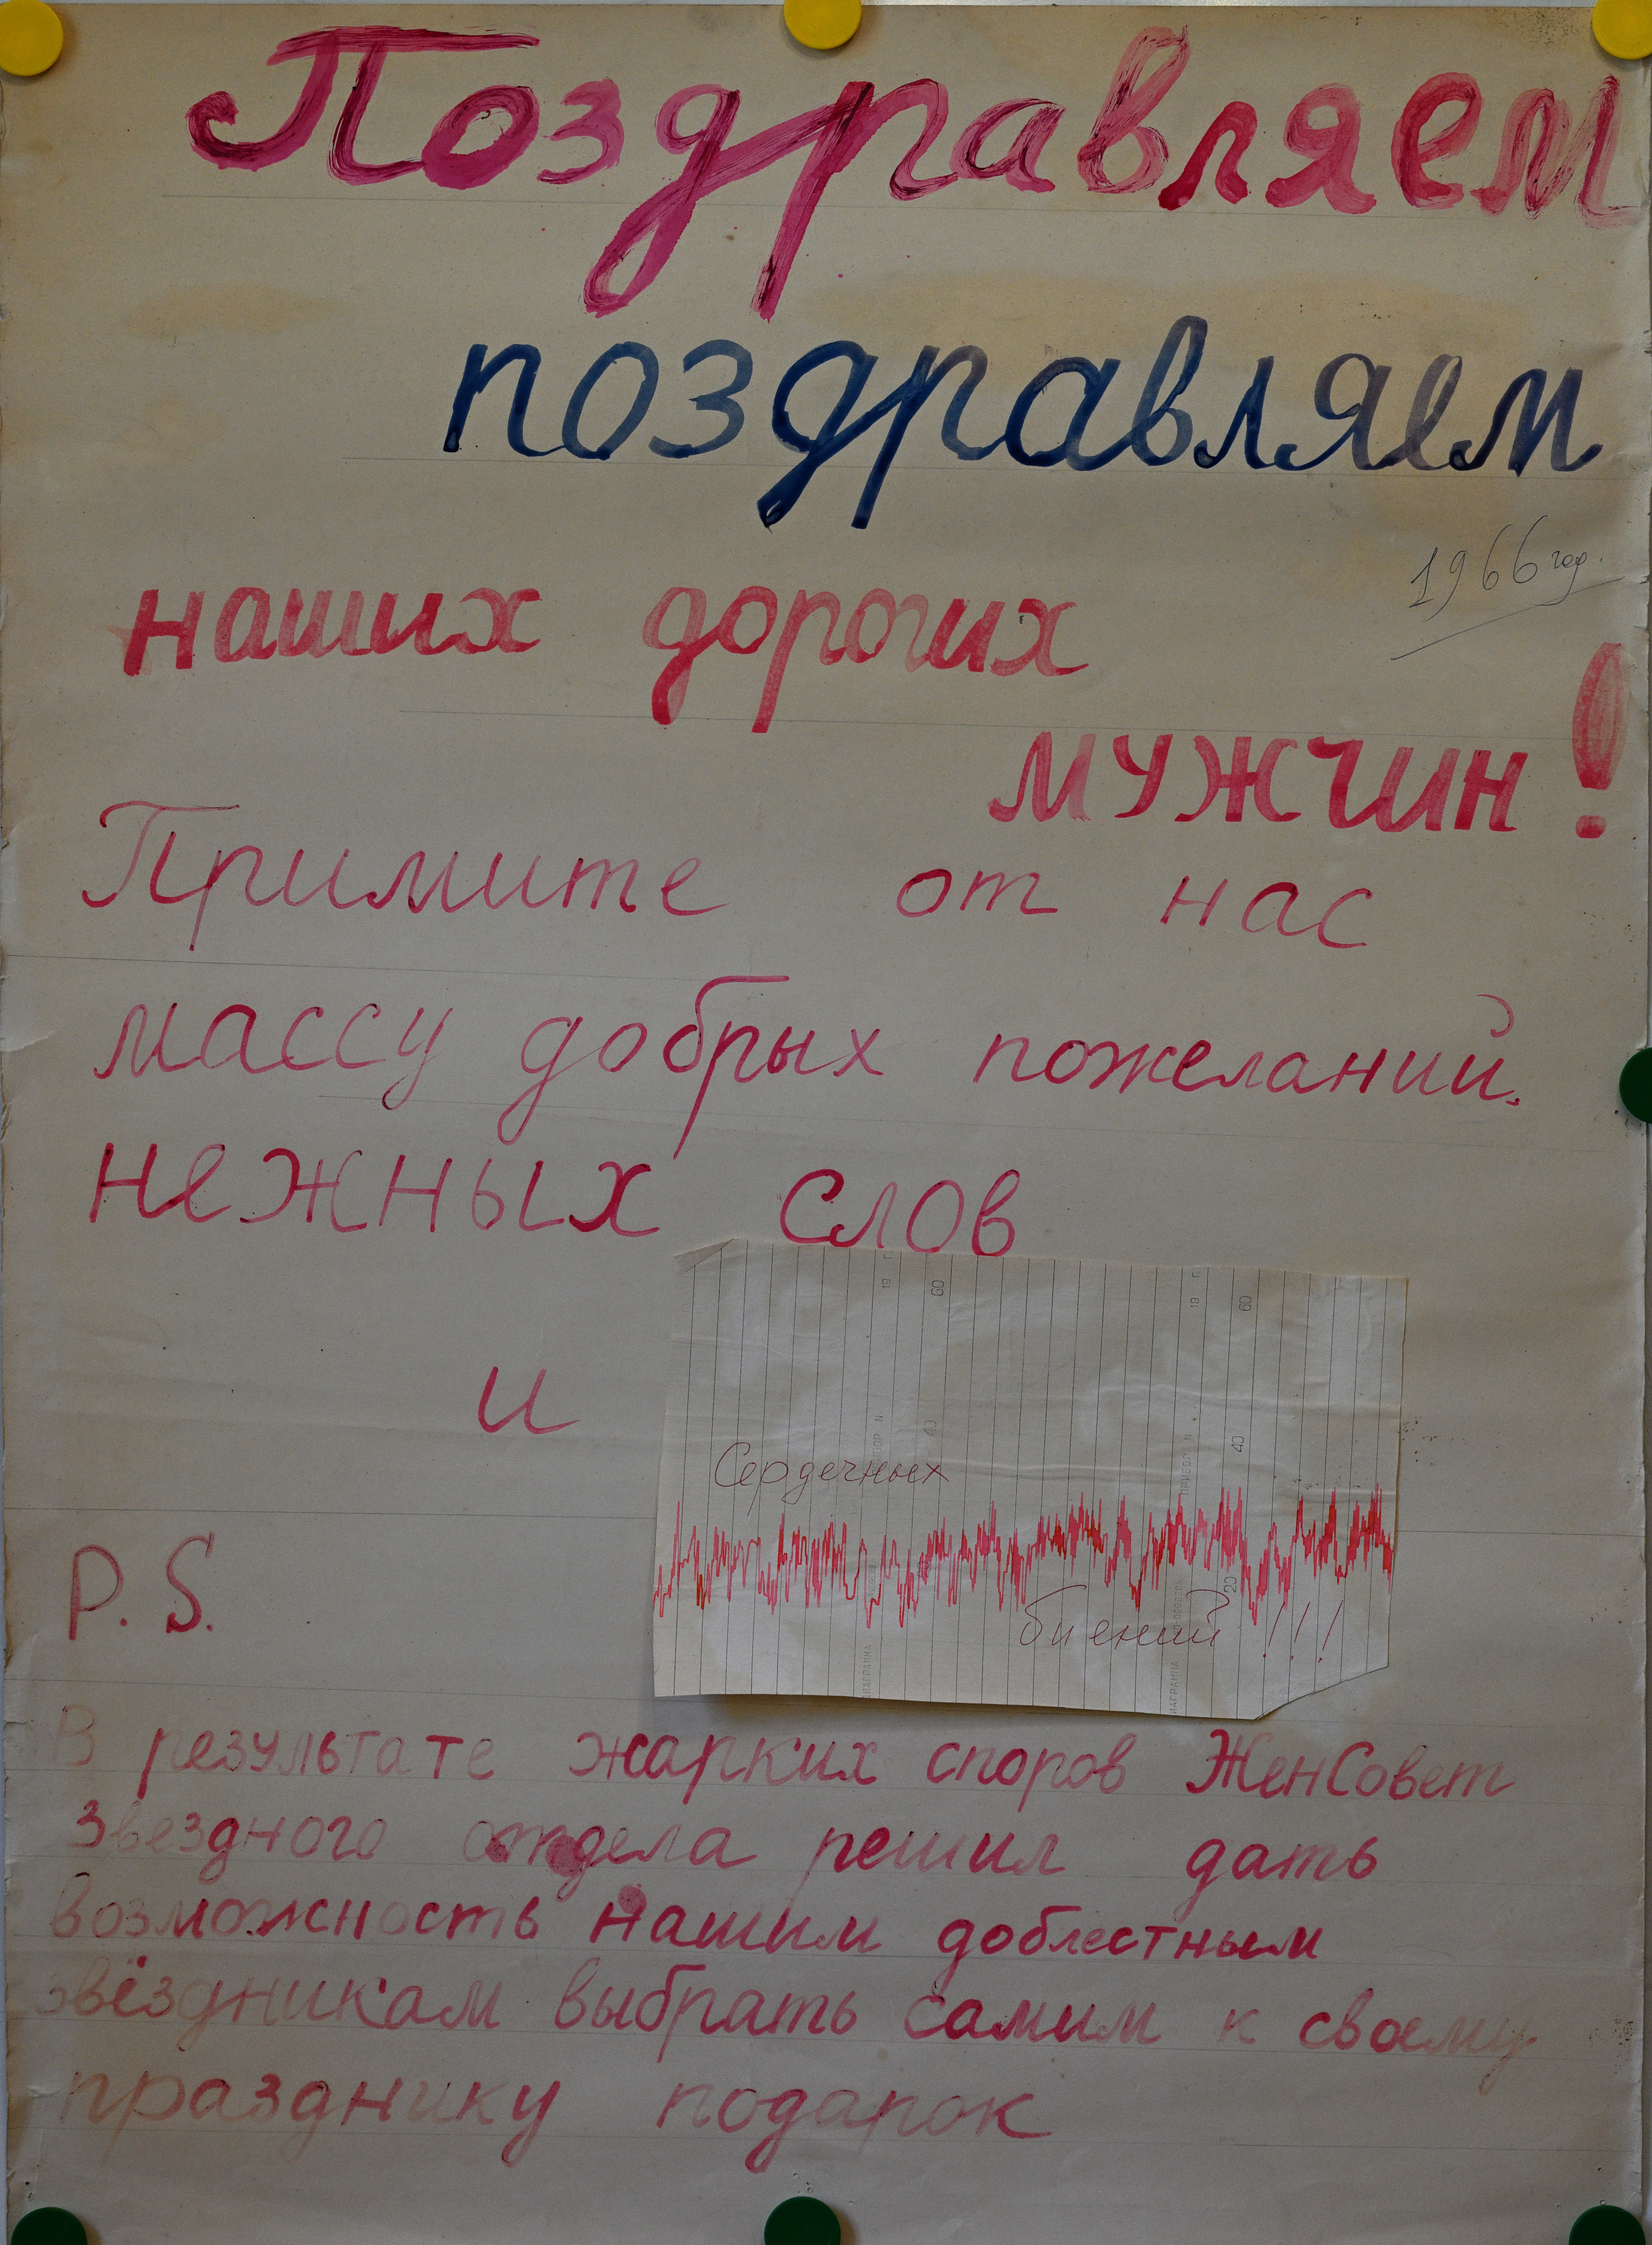 Поздравляем
поздравляем
1966 год.
наших дорогих
мужчин!
Примите от нас
массу добрых пожеланий,
нежных слов
19 г
60
19 г
60
и
ПРИБОР N
40
ПРИБОР N
40
Сердечных
20
биений!!!
ДИАГРАММА
ДИАГРАММА
P.S.
В результате жарких споров ЖенСовет
Звездного отдела решил дать
возможность нашим доблестным
звёздникам выбрать самим к своему
празднику подарок